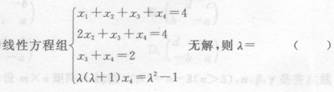 线性方程组
x₁+x₂+x₃+x₄=4
2x₂+x₃+x₄=4
x₃+x₄=2
λ(λ+1)x₄=λ²-1
无解,则λ= ( )